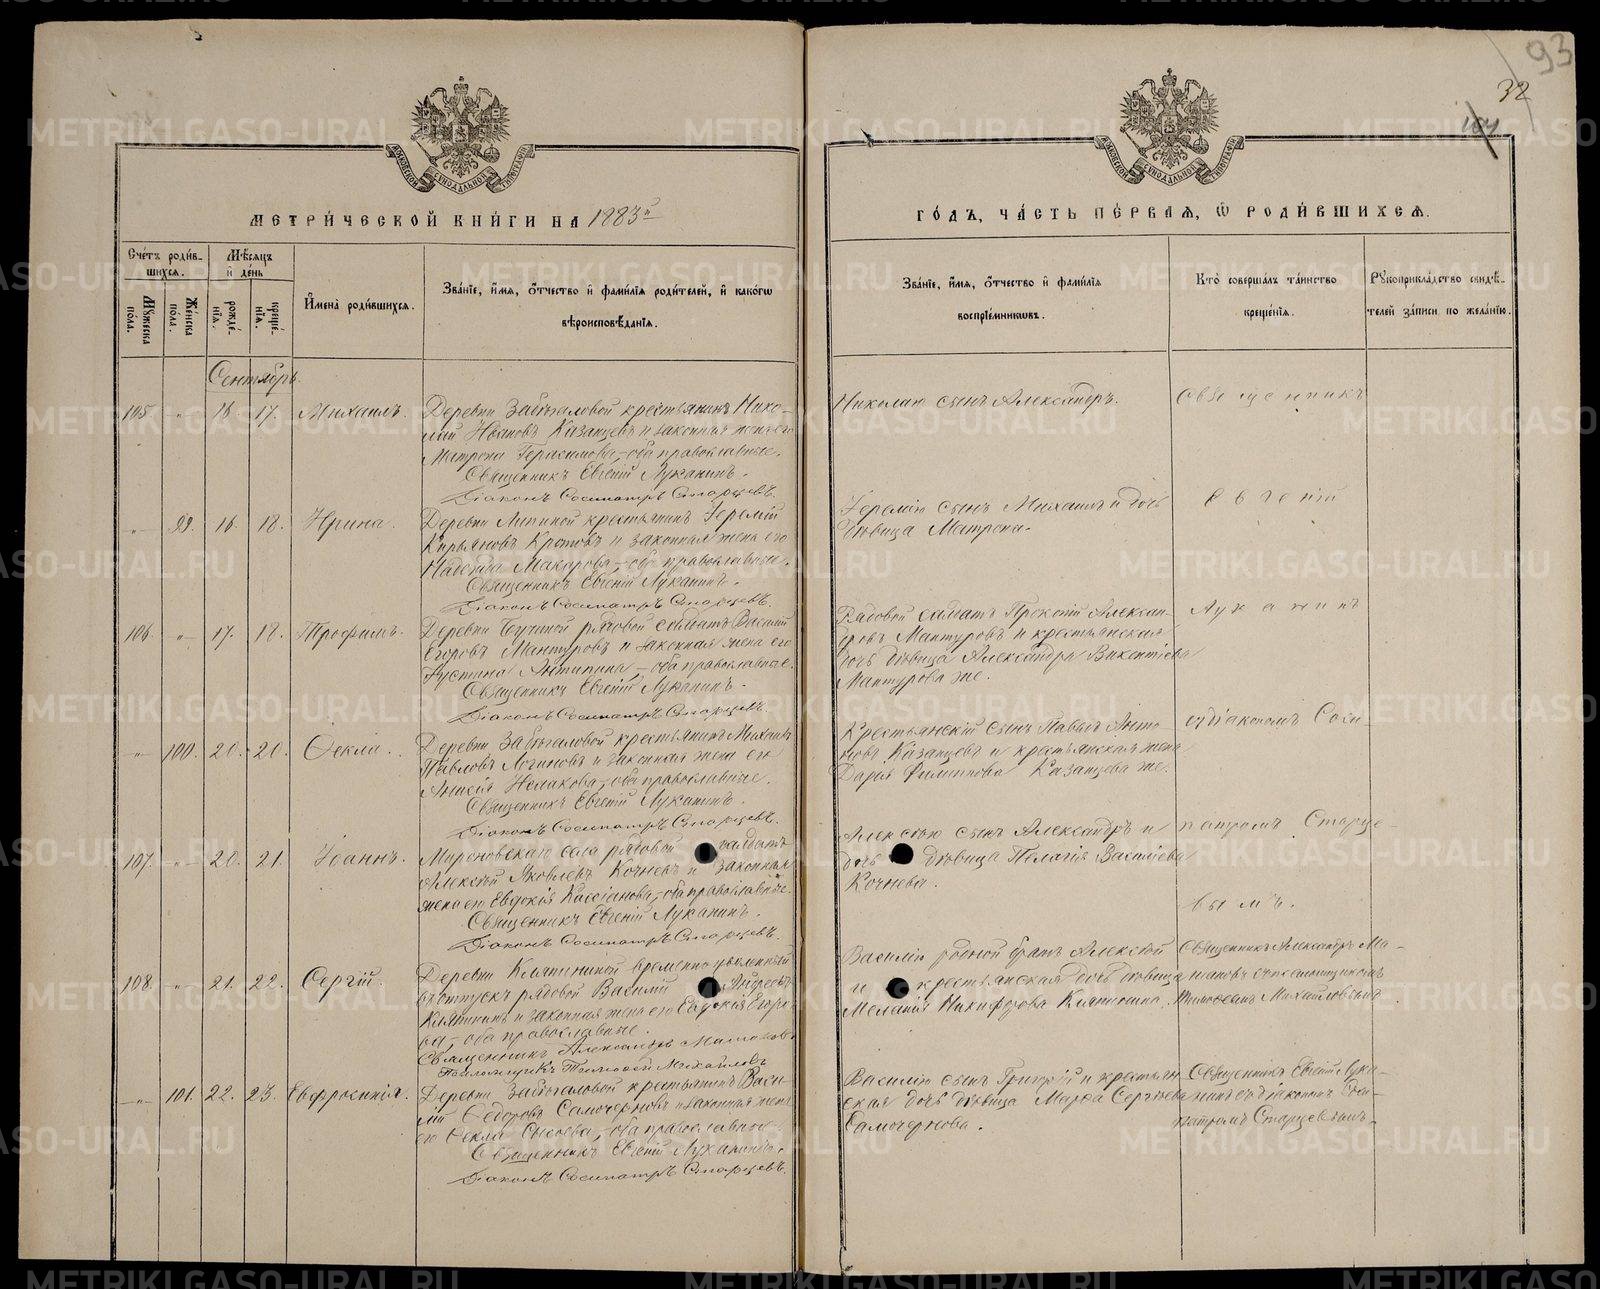 93
32
104
МОСКОВСКОЙ СУНОДАЛЬНОЙ ТИПОГРАФІИ
МОСКОВСКОЙ СУНОДАЛЬНОЙ ТИПОГРАФІИ
МЕТРИ́ЧЕСКОЙ КНИ́ГИ НА 1883й
ГО́ДЪ, ЧА́СТЬ ПЕ́РВАЯ, Ѡ РОДИ́ВШИХСЯ.
Сче́тъ роди́вшихся.
Мѣ́сяцъ и҆ де́нь
Му́жеска по́ла.
Же́нска по́ла.
рожде́нїя.
креще́нїя.
И҆мена̀ роди́вшихся.
Зва́нїе, и҆́мя, ѻ҆́тчество и҆ фами́лїя роди́телей, и҆ како́гѡ
вѣроисповѣ́данїя.
Зва́нїе, и҆́мя, ѻ҆́тчество и҆ фами́лїя
воспрїе́мниковъ.
Кто̀ соверша́лъ та́инство
креще́нїя.
Рꙋкоприкла́дство свидѣ́-
телей за́писи по жела́нїю.
Сентябрь.
105. -"- 16. 17. Михаилъ.
Деревни Забѣгаловой крестьянинъ Нико-
лай Ивановъ Казанцевъ и законная жена его
Матрена Герасимова, оба православные.
Священникъ Евгеній Луканинъ.
Діаконъ Сосипатръ Старцевъ.
Николаю сынъ Александръ.
Священникъ
-"- 99. 16. 18. Ирина.
Деревни Липиной крестьянинъ Іеремій
Кирьяновъ Кротовъ и законная жена его
Надежда Макарова, оба православные.
Священникъ Евгеній Луканинъ.
Діаконъ Сосипатръ Старцевъ.
Іеремію сынъ Михаилъ и дочь
дѣвица Матрена.
Евгеній
106. -"- 17. 18. Трофимъ.
рядовой солдатъ Василій
Егоровъ Мантуровъ и законная жена его
Іустина Антипина, оба православные.
Священникъ Евгеній Луканинъ.
Діаконъ Сосипатръ Старцевъ.
Рядовой солдатъ Прокопій Алексан-
дровъ Мантуровъ и крестьянская
дочь дѣвица Александра Викентіева
Мантурова же.
Луканинъ
-"- 100. 20. 20. Ѳекла.
Деревни Забѣгаловой крестьянинъ Михаилъ
Павловъ Логиновъ и законная жена его
Анисія, оба православные.
Священникъ Евгеній Луканинъ.
Діаконъ Сосипатръ Старцевъ.
Крестьянскій сынъ Павелъ Анто-
новъ Казанцевъ и крестьянская жена
Дарья Филиппова Казанцева же.
съ діакономъ Соси-
107. -"- 20. 21. Іоаннъ.
Мироновскаго села рядовой солдатъ
Алексѣй Яковлевъ Кочневъ и законная
жена его Евдокія Кассіанова, оба православные.
Священникъ Евгеній Луканинъ.
Діаконъ Сосипатръ Старцевъ.
Алексѣю сынъ Александръ и
дочь дѣвица Пелагія Василіева
Кочнева.
патромъ Старце-
вымъ.
108. -"- 21. 22. Сергій.
Деревни Клятининой временно уволенный
въ отпускъ рядовой Василій Андреевъ
Клятининъ и законная жена его Евдокія
оба православные.
Священникъ Александръ
Псаломщикъ Тимоѳей Михайловъ
Василію родной братъ Алексѣй
и крестьянская дочь дѣвица
Меланія Никифорова Клятинина.
Священникъ Александръ Ма-
съ псаломщикомъ
Тимоѳеемъ Михайловымъ.
-"- 101. 22. 23. Евфросинія.
Деревни Забѣгаловой крестьянинъ Васи-
лій Ѳедоровъ Самочерновъ и законная жена
его Ѳекла Сысоева, оба православные.
Священникъ Евгеній Луканинъ.
Діаконъ Сосипатръ Старцевъ.
Василію сынъ Григорій и крестьян-
ская дочь дѣвица Марѳа Сергѣева
Самочернова.
Священникъ Евгеній Лука-
нинъ съ діакономъ Соси-
патромъ Старцевымъ.
METRIKI.GASO-URAL.RU